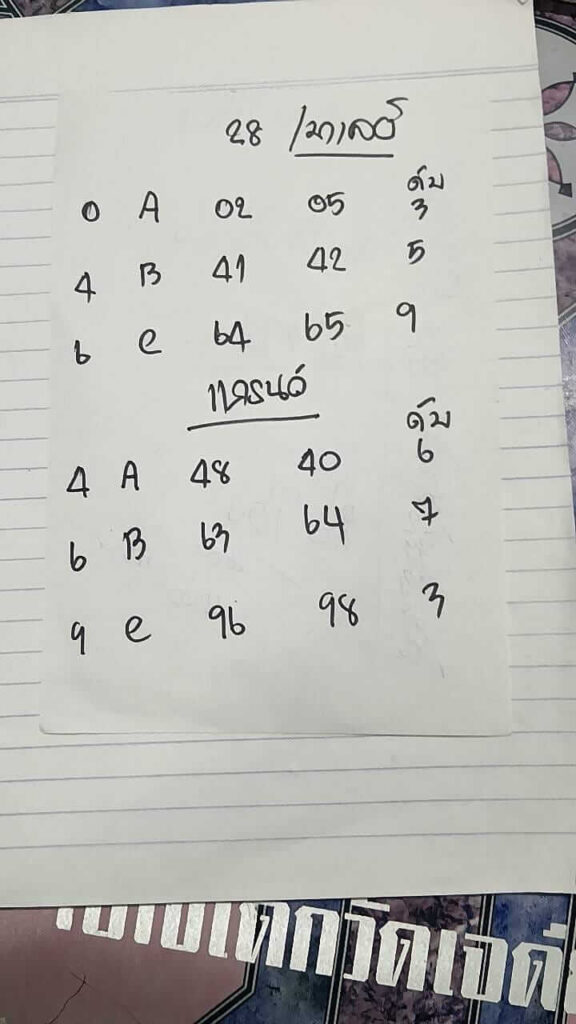 28 / มาเลย์
ดับ
0 A 02 05 3
4 B 41 42 5
6 C 64 65 9
แกรนด์
ดับ
4 A 48 40 6
6 B 63 64 7
9 C 96 98 3